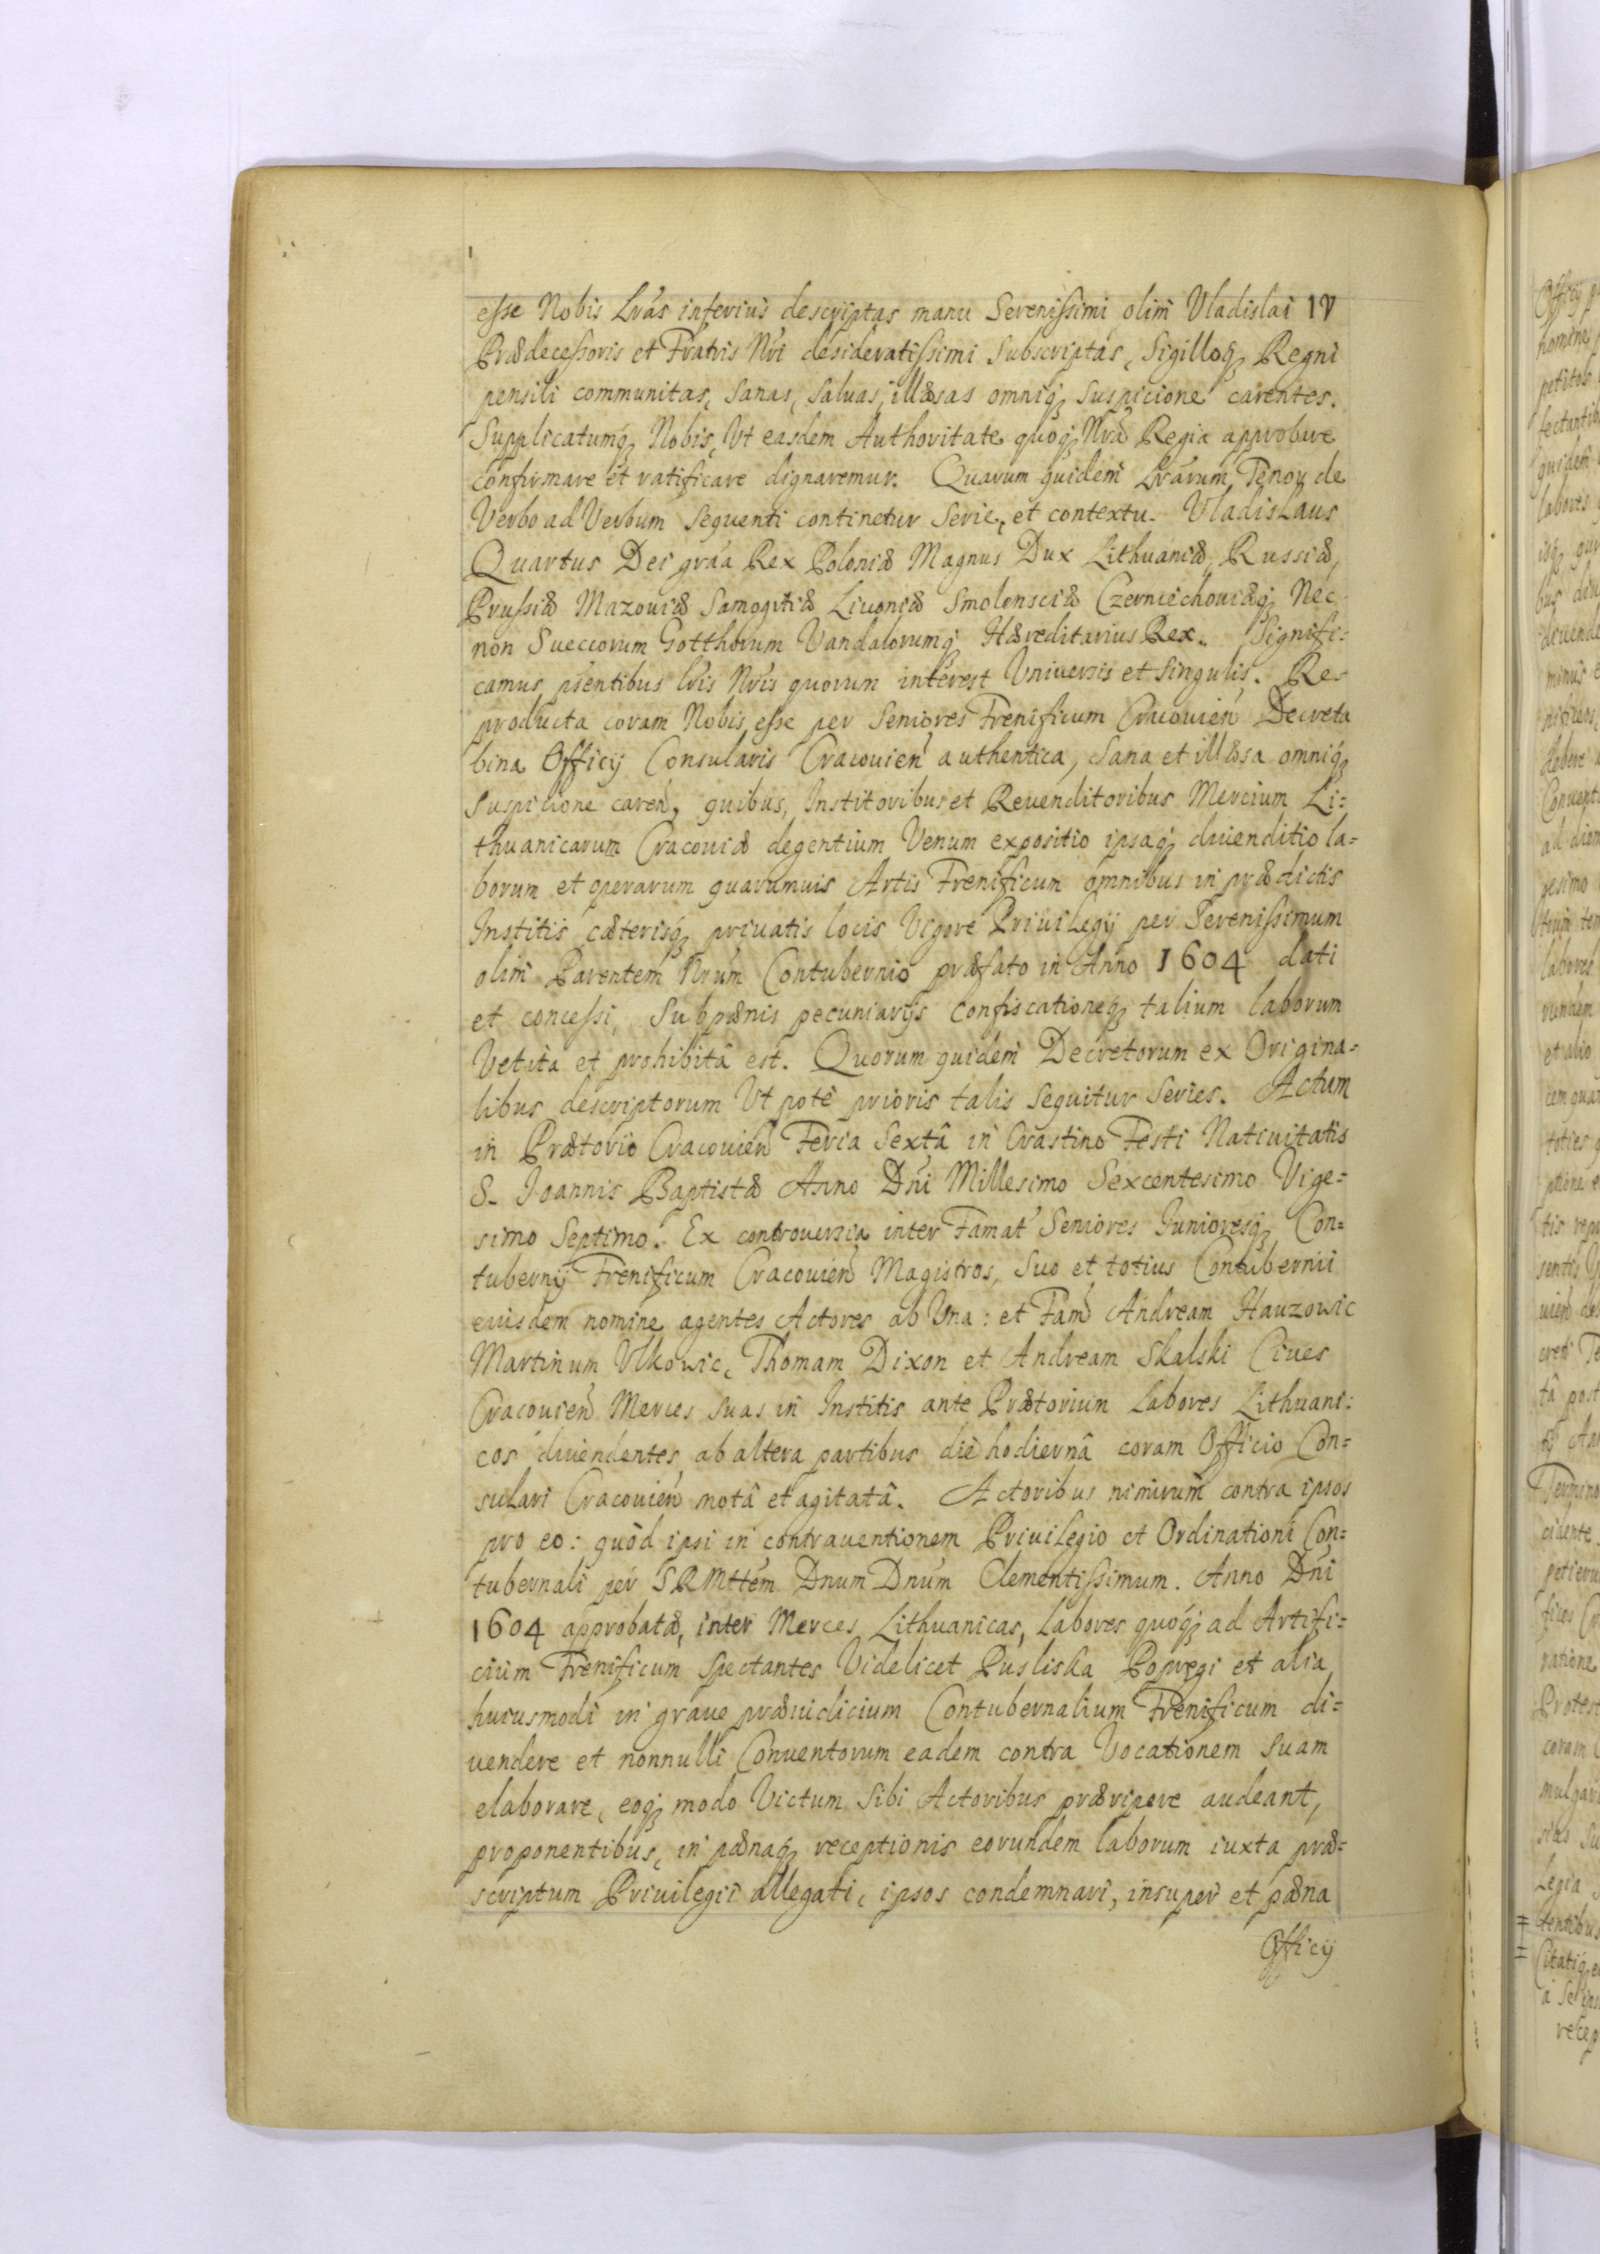 esse Nobis Lrás inferius descriptas manu Serenissimi olim Vladislai IV
Prædecessoris et Fratris Nri desideratissimi Subscriptas, Sigilloq3 Regni
pensili communitas, sanas, saluas, illæsas omniq3 suspicione carentes.
Supplicatumq3 Nobis, Vt easdem Authoritate quoq3 Nrâ Regia approbare
confirmare et ratificare dignaremur. Quarum quidem Lrarum Tenor de
Verbo ad Verbum sequenti continetur serie, et contextu. Vladislaus
Quartus Dei gráa Rex Poloniæ Magnus Dux Lithuaniæ, Russiæ,
Prussiæ Mazouiæ Samogitiæ Liuoniæ Smolensciæ Czerniechouiæq3 Nec
non Suecorum Gotthorum Vandalorumq3 Hæreditarius Rex. Signifi=
camus pñtentibus lris Nris quorum interest Vniuersis et singulis. Re=
producta coram Nobis esse per Seniores Frenificum Cracouień Decreta
bina Officij Consularis Cracouień authentica, sana et illæsa omniq3
suspicione careń, quibus, Institoribus et Reuenditoribus Mercium Li=
thuanicarum Cracouiæ degentium Venum expositio ipsaq3 diuenditio la=
borum et operarum quarumuis Artis Frenificum omnibus in prædictis
Institis cæterisq3 priuatis locis Vigore Priuilegij per Serenissimum
olim Parentem Nrum Contubernio præfato in Anno 1604 dati
et concessi, Sub pænis pecuniarijs confiscationeq3 talium laborum
Vetita et prohibitâ est. Quorum quidem Decretorum ex Origina=
libus descriptorum Vt potè prioris talis sequitur series. Actum
in Prætorio Cracouień Feria Sextâ in Crastino Festi Natiuitatis
S. Joannis Baptistæ Anno Dñi Millesimo Sexcentesimo Vige=
simo Septimo. Ex controuersia inter Famat Seniores Junioresq3 Con=
tubernij Frenificum Cracouień Magistros, suo et totius Contubernii
eiusdem nomine agentes Actores ab Vna: et Fam Andream Hauzowic
Martinum Vlkowic, Thomam Dixon et Andream Skalski Ciues
Cracouień Merces suas in Institis ante Prætorium Labores Lithuani=
cos diuendentes, ab altera partibus die hodiernâ coram Officio Con=
sulari Cracouień motâ et agitatâ. Actoribus nimirum contra ipsos
pro eo: quòd ipsi in contrauentionem Priuilegio et Ordinationi Con=
tubernali per SRMttem Dnum Dnum Clementissimum. Anno Dñi
1604 approbatæ, inter Merces Lithuanicas, labores quoq3 ad Artifi=
cium Frenificum spectantes Videlicet Pusliska Popregi et alia
huiusmodi in graue præiudicium Contubernalium Frenificum di=
uendere et nonnulli Conuentorum eadem contra Vocationem suam
elaborare, eoq3 modo Victum sibi Actoribus præripere audeant,
proponentibus, in pænaq3 receptionis eorundem laborum iuxta præ=
scriptum Priuilegii allegati, ipsos condemnari, insuper et pæna
Officij